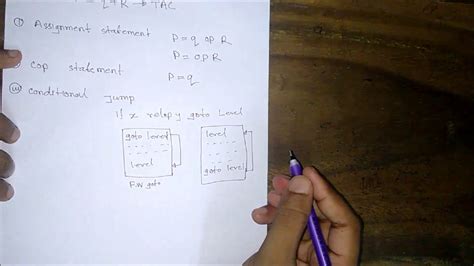 = q + R → TAC
(i) Assignment statement P = q op R
P = op R
Cop statement P = q
(iii) Conditional Jump
If x relop y goto Level
goto level
level
F.W goto
level
goto level